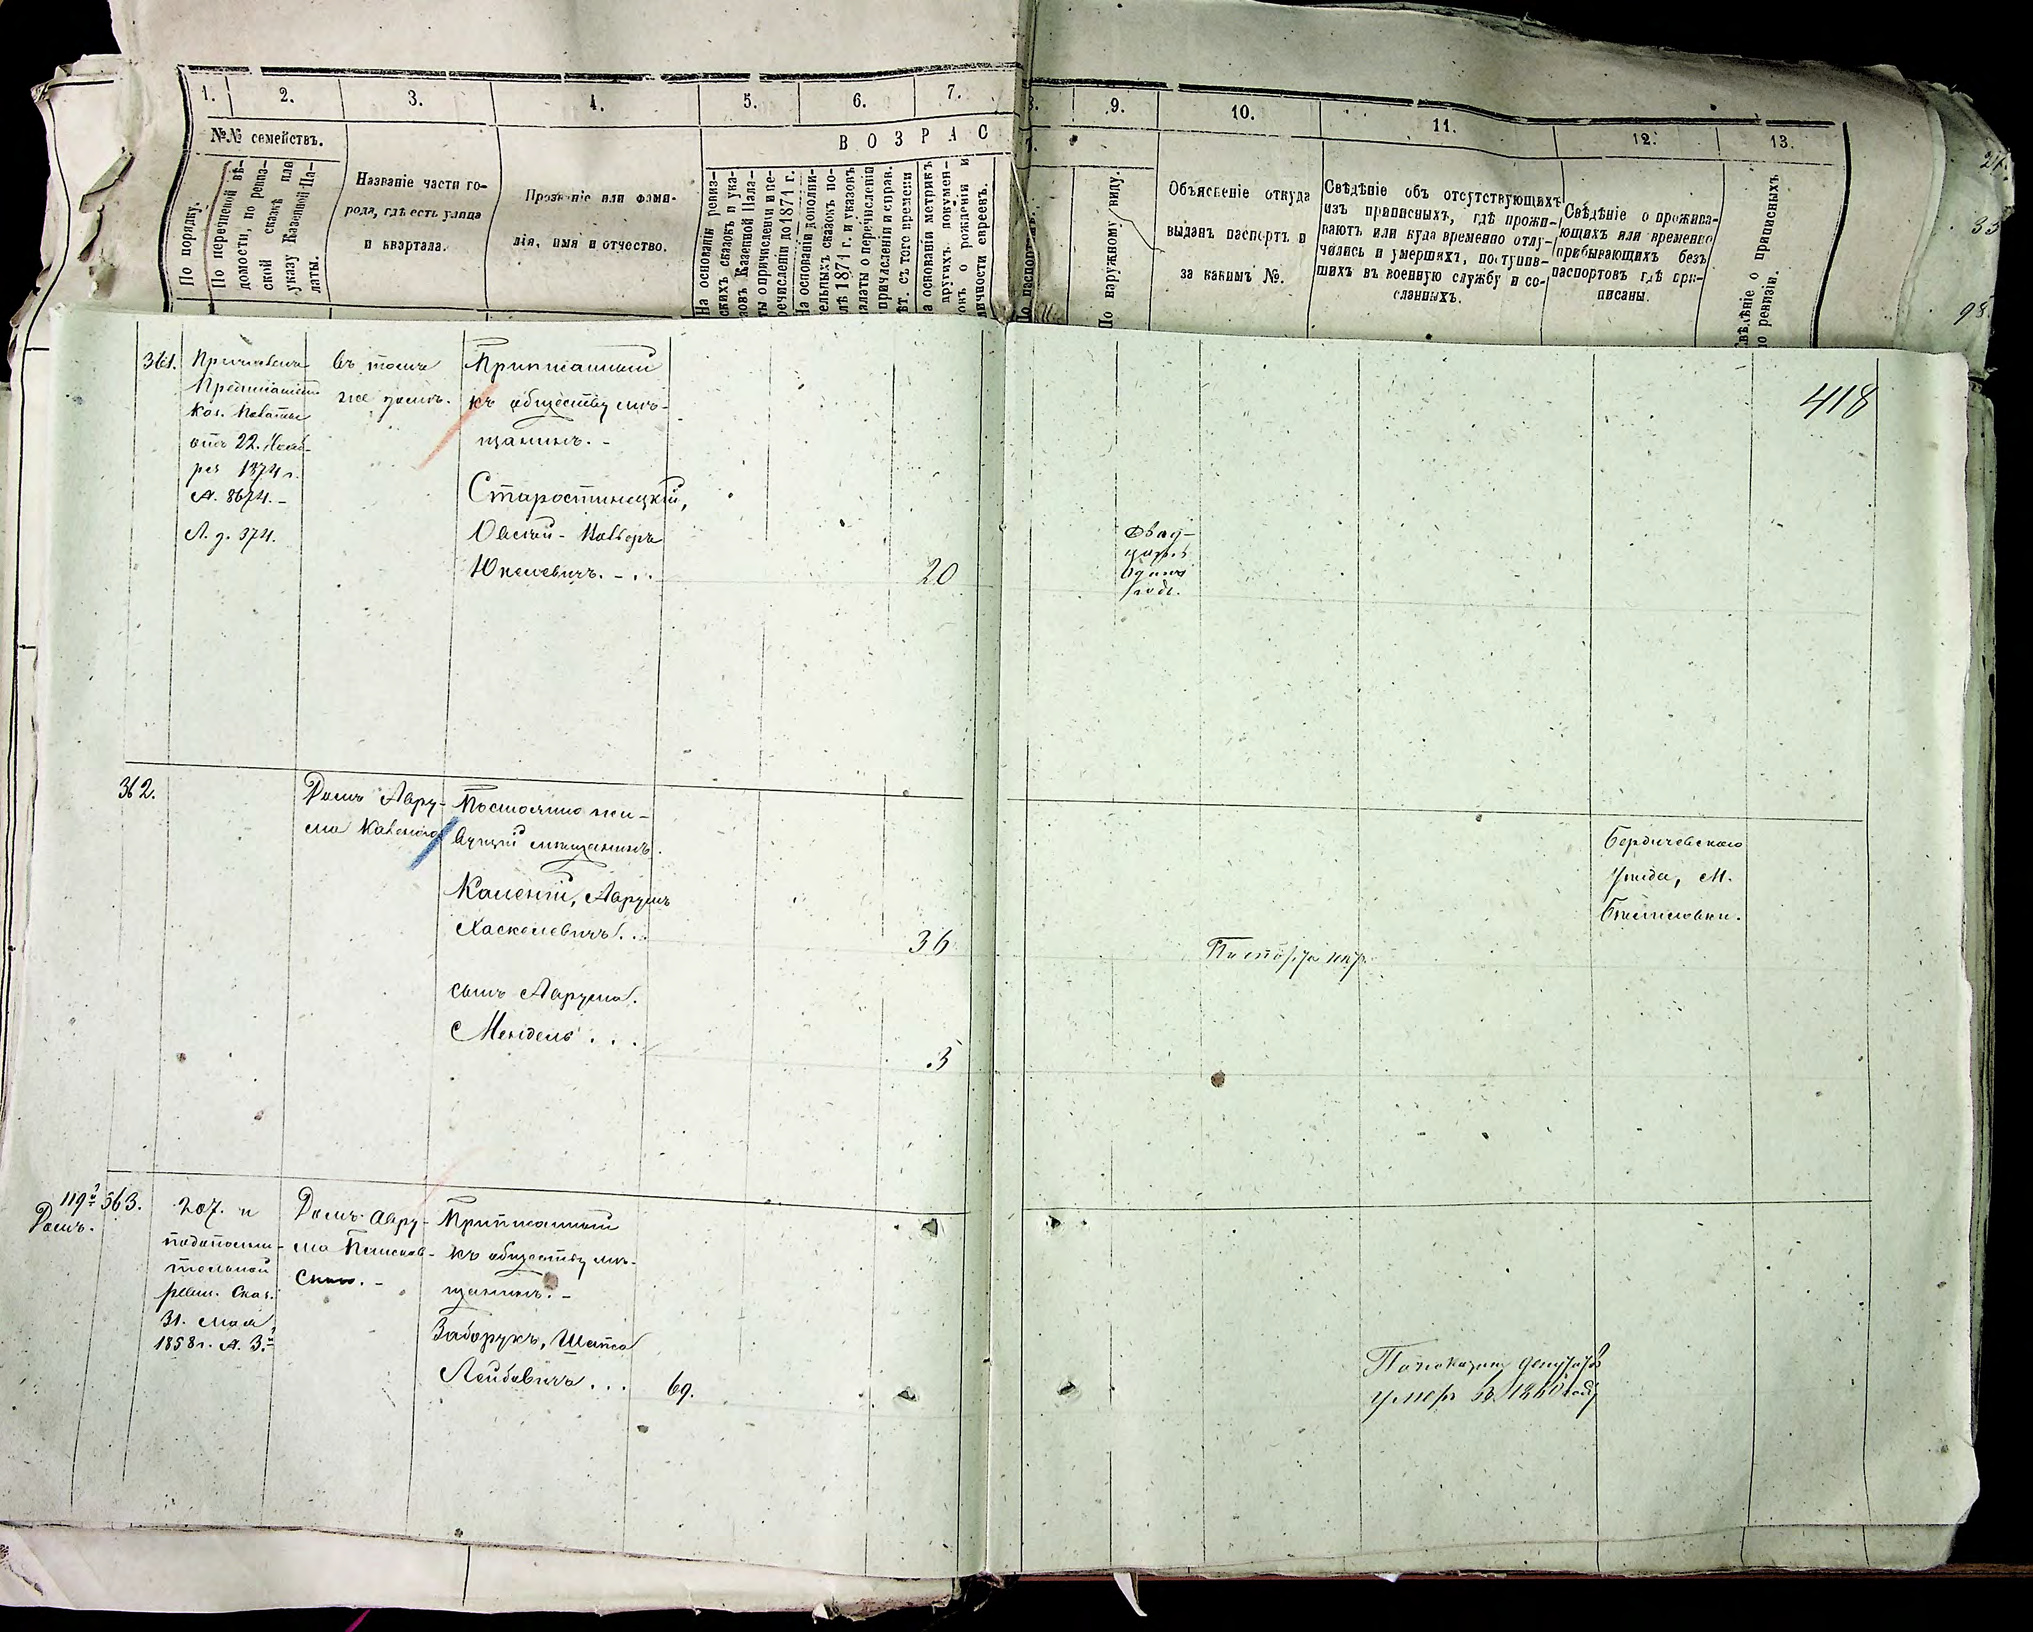 1. 2. 3. 4. 5. 6. 7.
№№ семействъ.
По порядку.
По перечневой вѣ-
домости, по ревиз-
ской сказкѣ или
указу Казенной Па-
латы.
Названіе части го-
рода, гдѣ есть улица
и квартала.
Прозваніе или фами-
лія, имя и отчество.
ВОЗРАС
На основаніи ревиз-
скихъ сказокъ и ука-
зовъ Казенной Пала-
ты о причисленіи и пе-
речисленіи до 1871 г.
На основаніи дополни-
тельныхъ сказокъ по-
слѣ 1871 г. и указовъ
палаты о перечисленіи
причисленіи и справ.
лѣт. съ того времени
а основаніи метрикъ
других докумен-
окъ о рожденіи и
личности евреевъ.
8. 9. 10. 11. 12. 13.
По паспортамъ.
По наружному виду.
Объясненіе откуда
выданъ паспортъ и
за какимъ №.
Свѣдѣніе объ отсутствующихъ
изъ приписныхъ, гдѣ прожи-
ваютъ или куда временно отлу-
чились и умершихъ, поступив-
шихъ въ военную службу и со-
сланныхъ.
Свѣдѣніе о прожива-
ющихъ или временно
прибывающихъ безъ
паспортовъ гдѣ при-
писаны.
Свѣдѣніе о приписныхъ
по ревизіи.
418
361.
Предписаніем
Каз. Палаты
отъ 22. Нояб-
ря 1874 г.
№. 8674. -
Л. д. 374.
въ томъ
же домѣ.
Приписанный
къ обществу мѣ-
щанинъ. -
Старостинецкій,
Юкелевичъ. - . .
20
Двад-
цать
Одинъ
годъ.
362.
Домъ Авру-
ма Каменного
Постоянно жи-
вущій мещанинъ.
Каменій, Аврумъ
Хаскелевичъ. . .
36
сынъ Аврума.
Мендель . . .
3
Бердичевскаго
Уѣзда, М.
119й Домъ.
363.
207. и
по дополни-
тельной
ревиз. Сказ.
31. Мая
1858 г. №. 3.й
Домъ Авру-
ма
Приписанный
къ обществу мѣ-
щанинъ. -
Заборукъ, Шапса
Лейбовичъ . . .
69.
По показанію депутатовъ
умеръ въ 1860 году